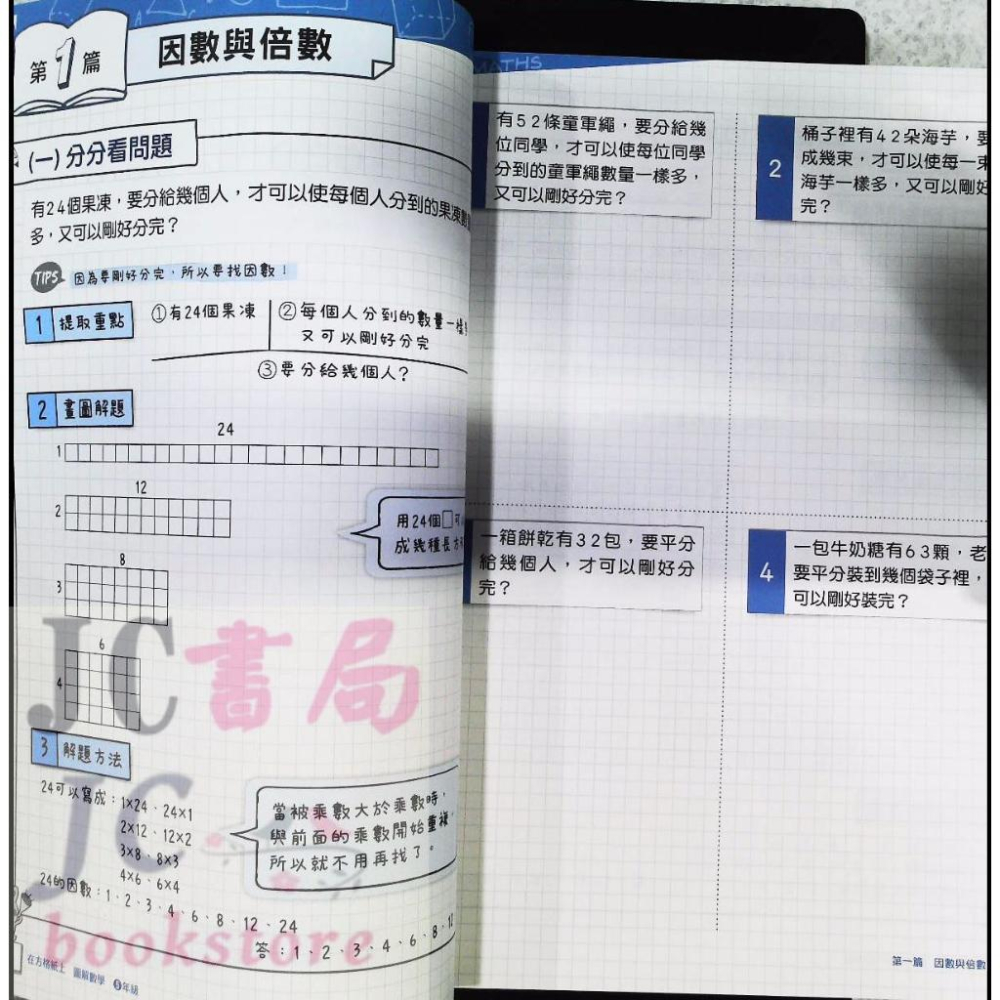 第1篇
因數與倍數
(一)分分看問題
有24個果凍，要分給幾個人，才可以使每個人分到的果凍數
多，又可以剛好分完？
TIPS 因為要剛好分完，所以要找因數！
1 提取重點
①有24個果凍
②每個人分到的數量一樣
又可以剛好分完
③要分給幾個人？
2 畫圖解題
24
1
12
2
8
3
6
4
用24個□可
成幾種長方
3 解題方法
24可以寫成：1×24、24×1
2×12、12×2
3×8、8×3
4×6、6×4
24的因數：1、2、3、4、6、8、12、24
當被乘數大於乘數時，
與前面的乘數開始重複，
所以就不用再找了。
答：1、2、3、4、6、8、12
在方格紙上 圖解數學 5年級
MATHS
有52條童軍繩，要分給幾
位同學，才可以使每位同學
分到的童軍繩數量一樣多，
又可以剛好分完？
2
桶子裡有42朵海芋，要
成幾束，才可以使每一束
海芋一樣多，又可以剛好
完？
一箱餅乾有32包，要平分
給幾個人，才可以剛好分
完？
4
一包牛奶糖有63顆，老
要平分裝到幾個袋子裡，
可以剛好裝完？
第一篇 因數與倍數
JC書局
JC
bookstore